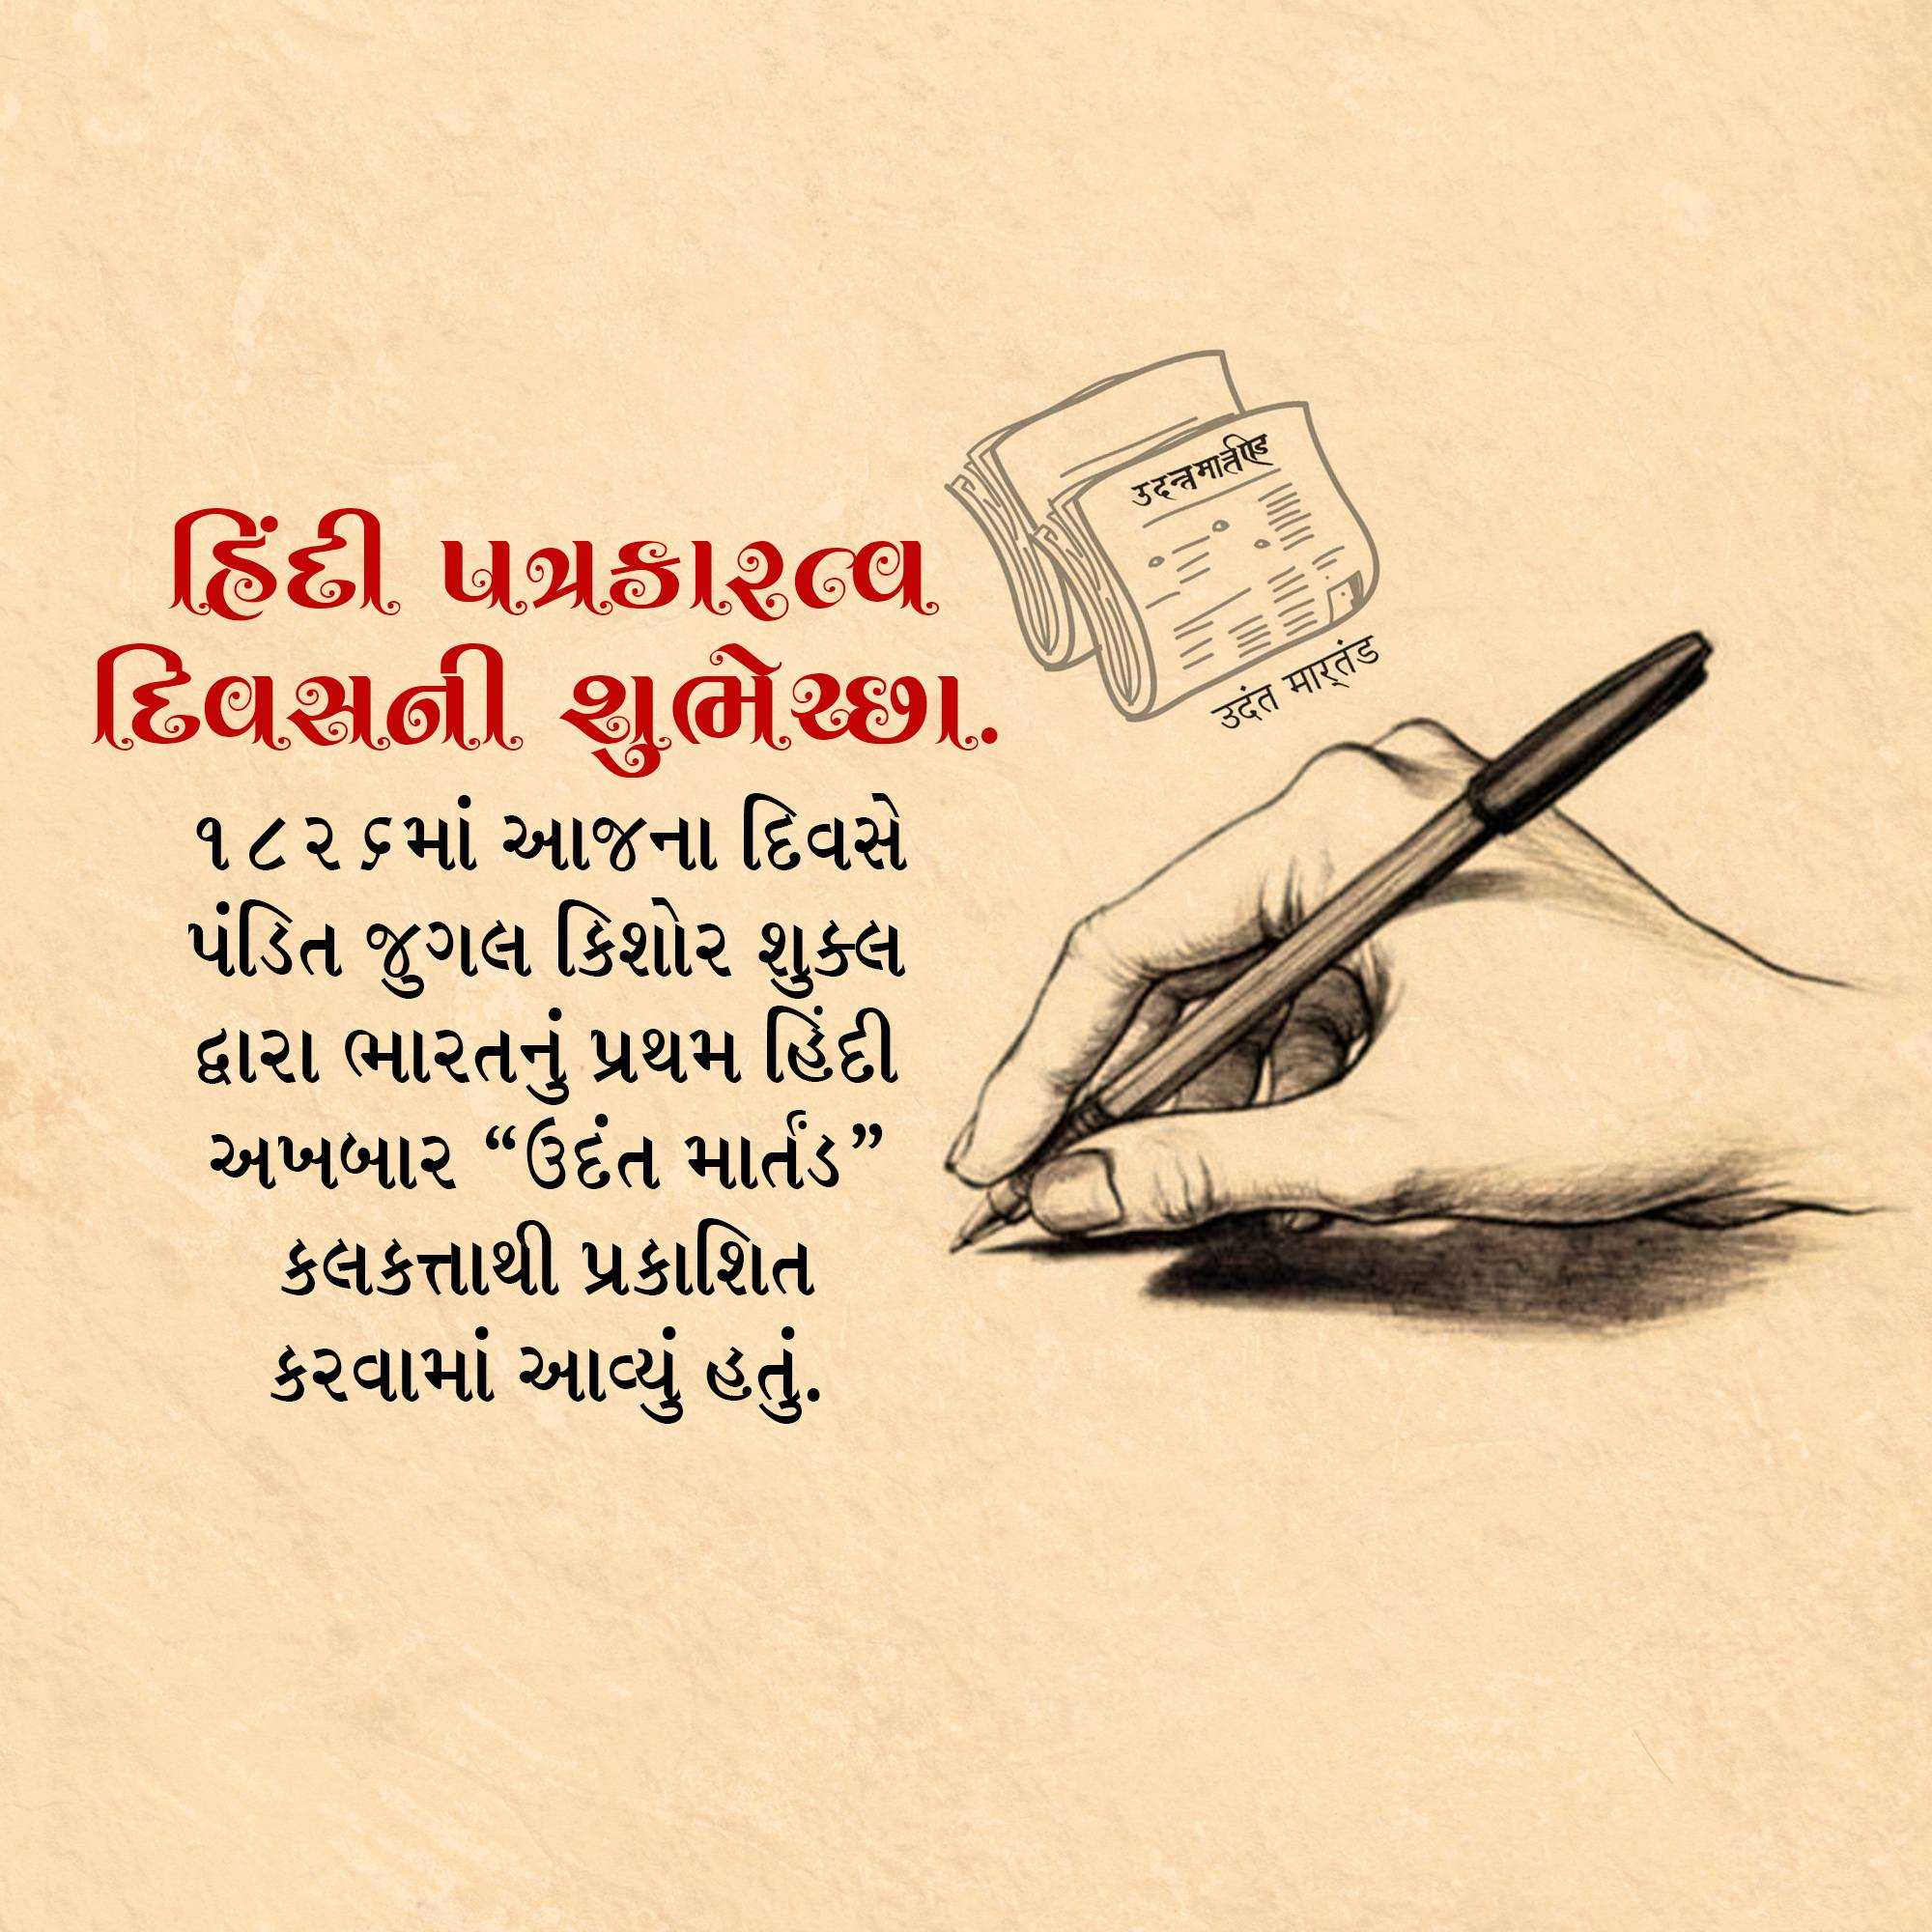 હિંદી પત્રકારત્વ
દિવસની શુભેચ્છા.
૧૮૨૬માં આજના દિવસે
પંડિત જુગલ કિશોર શુક્લ
દ્વારા ભારતનું પ્રથમ હિંદી
અખબાર “ઉદંત માર્તંડ”
કલકત્તાથી પ્રકાશિત
કરવામાં આવ્યું હતું.
उदन्तमार्तण्ड
उदंत मार्तंड